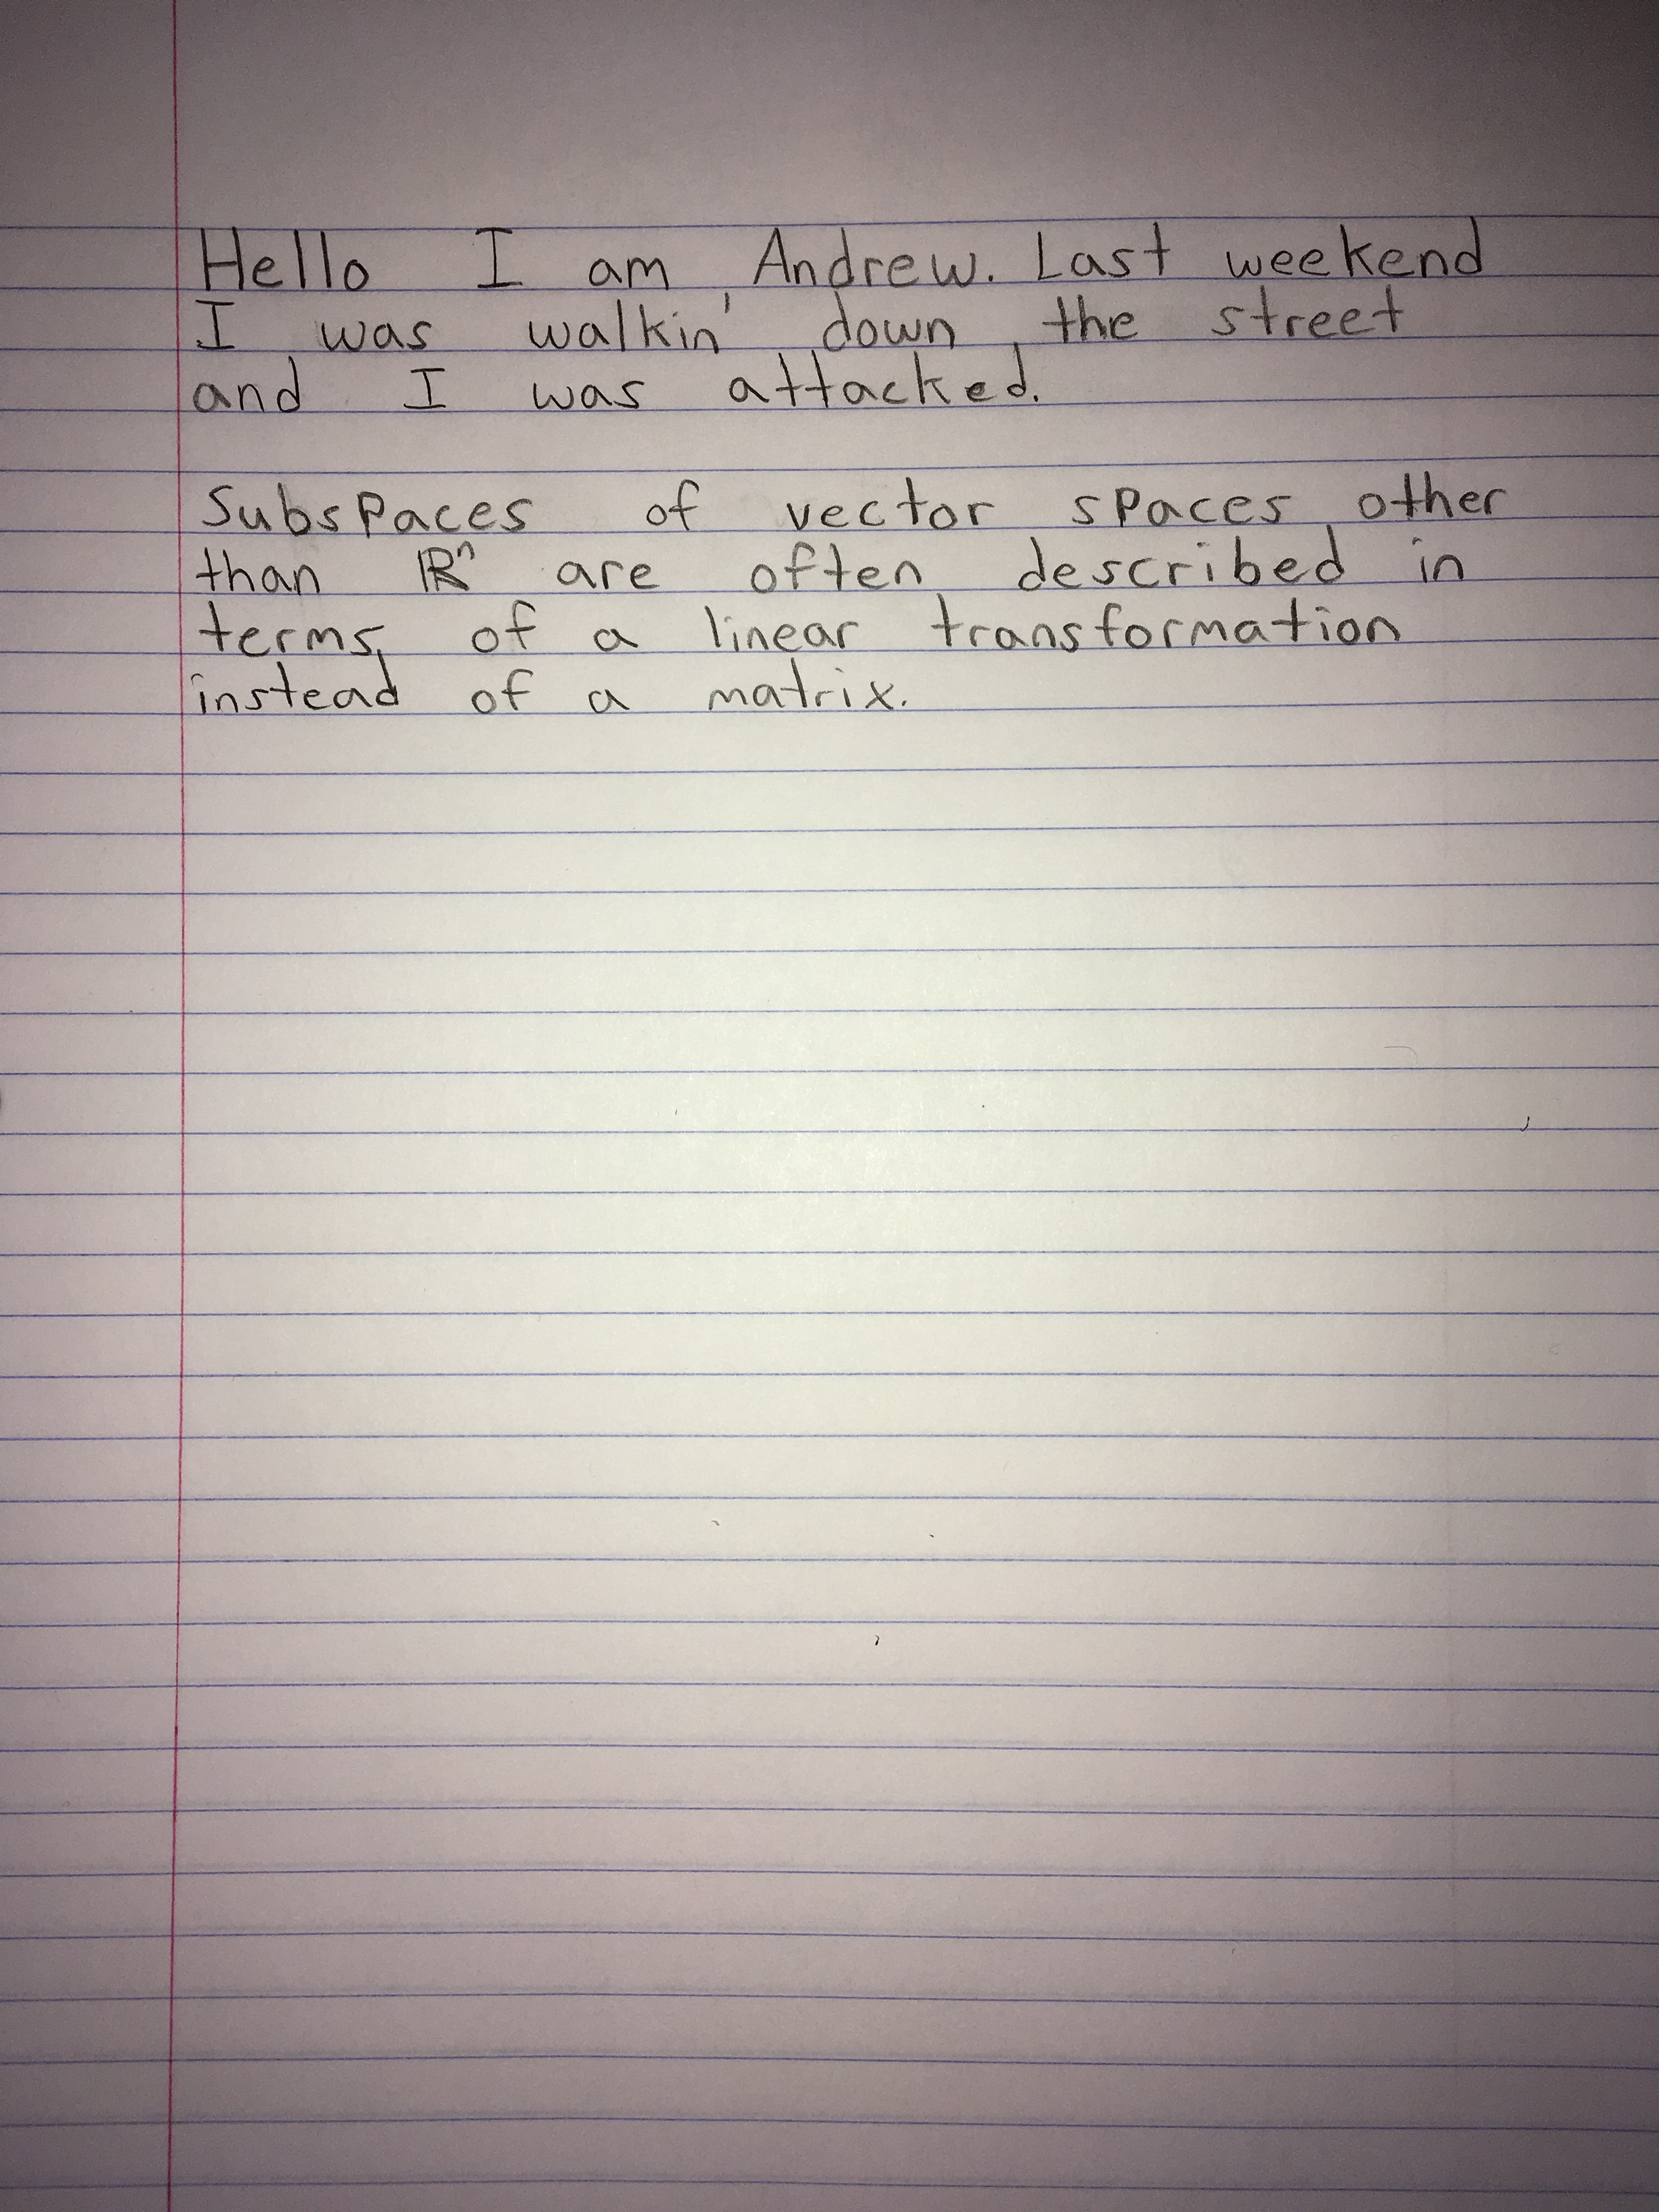 Hello I am Andrew. Last weekend
I was walkin' down the street
and I was attacked.
Subspaces of vector spaces other
than ℝⁿ are often described in
terms of a linear transformation
instead of a matrix.